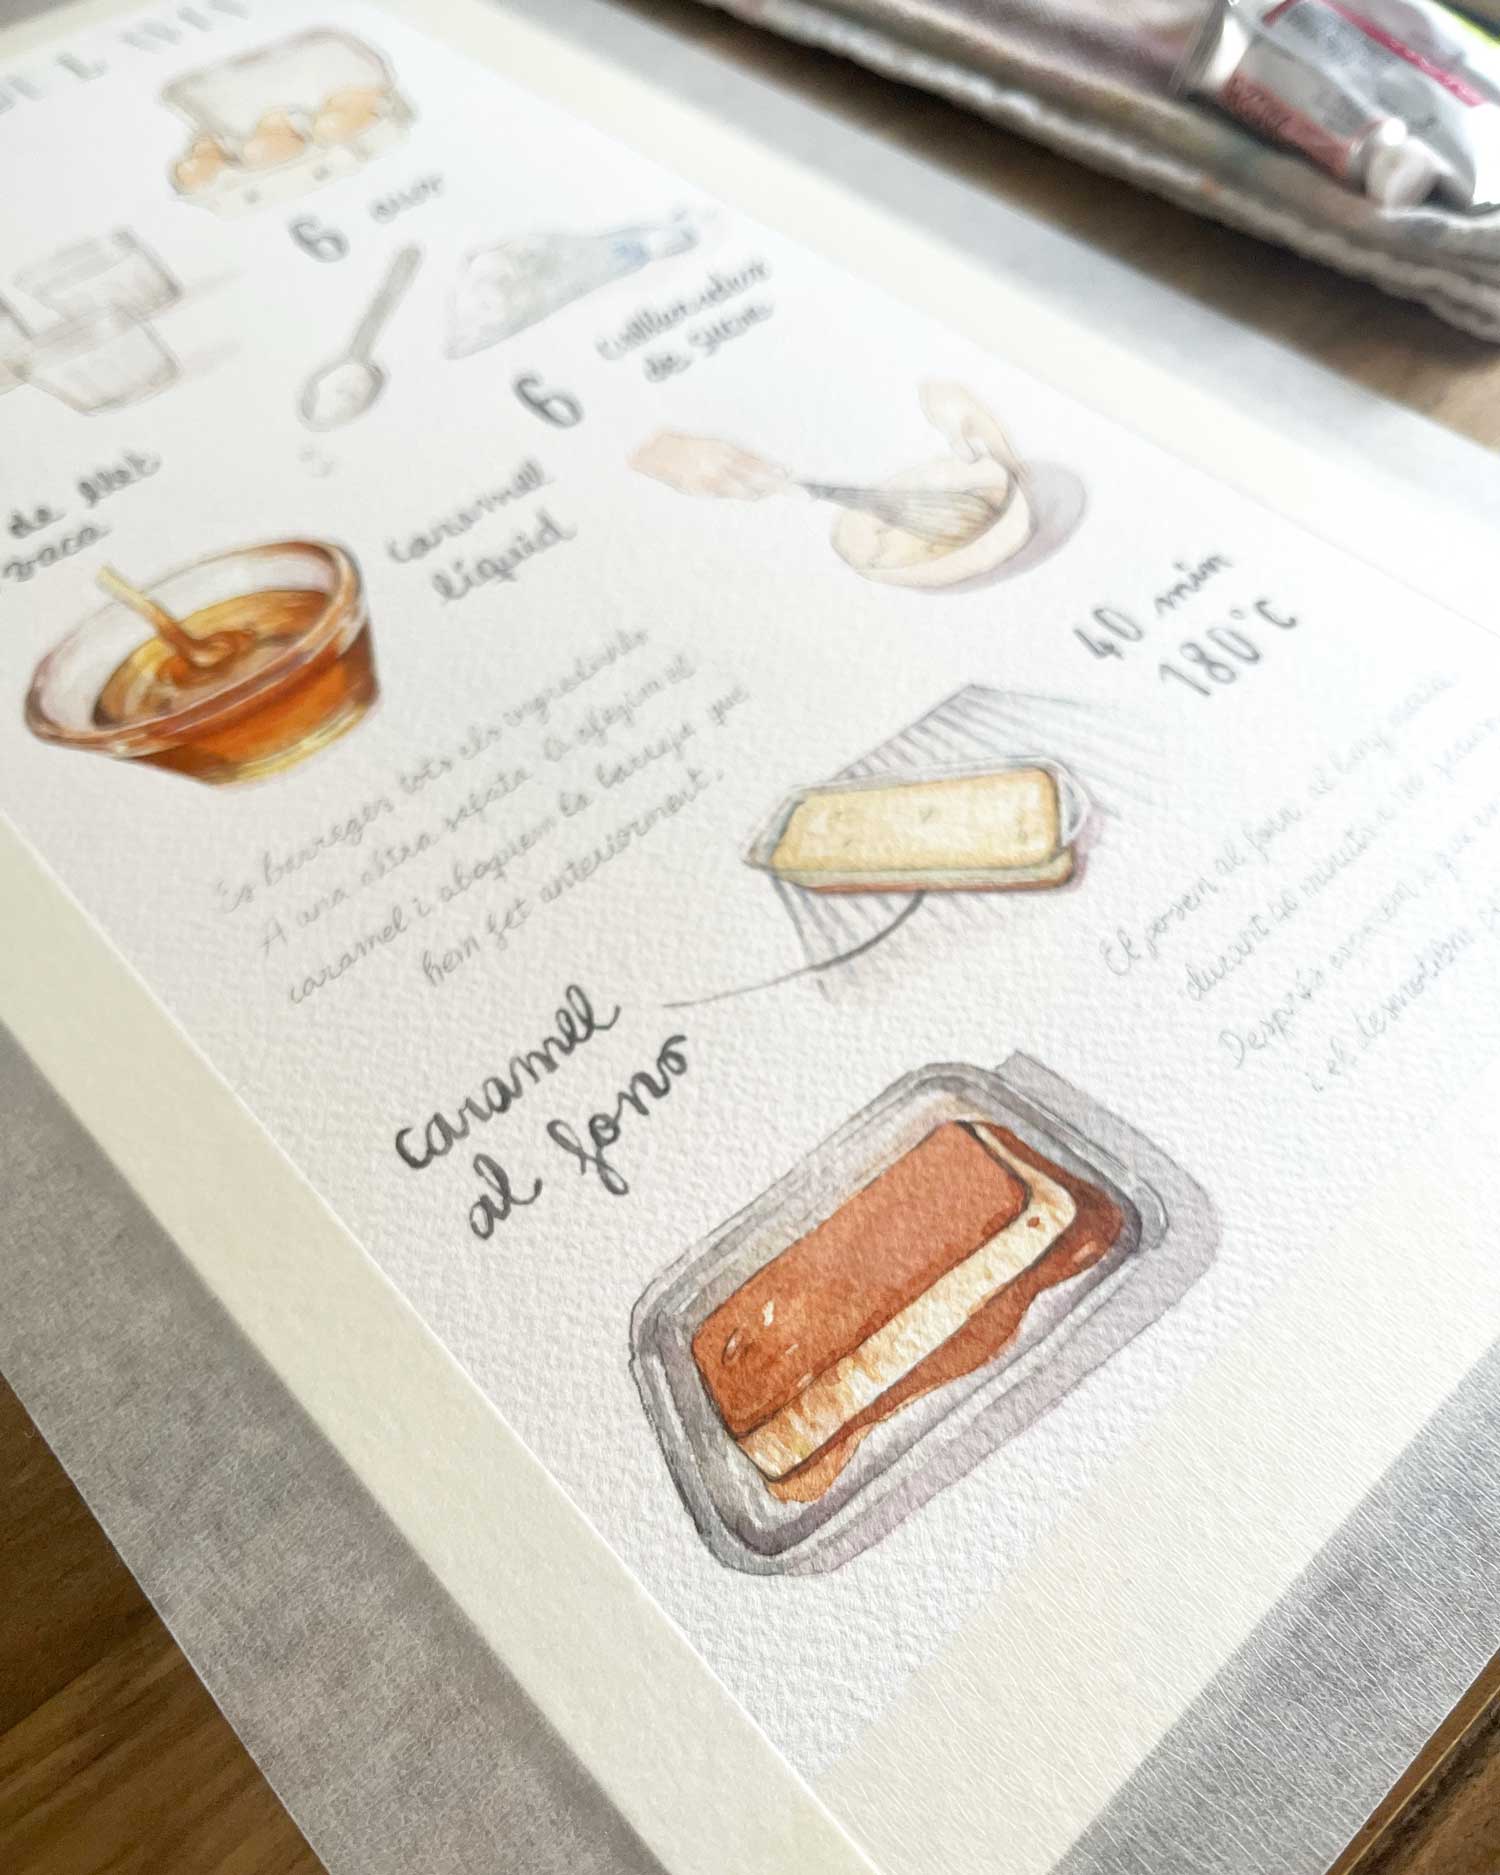 6 ous
6 cullerades
de sucre
de llet
vaca
caramel
líquid
40 min
180°C
Es barregen tots els ingredients
A una altra safata hi afegim el
caramel i aboquem la barreja que
hem fet anteriorment.
caramel
al fons
El posem al forn al bany maria
durant 40 minutos
Després
i el desmotllem